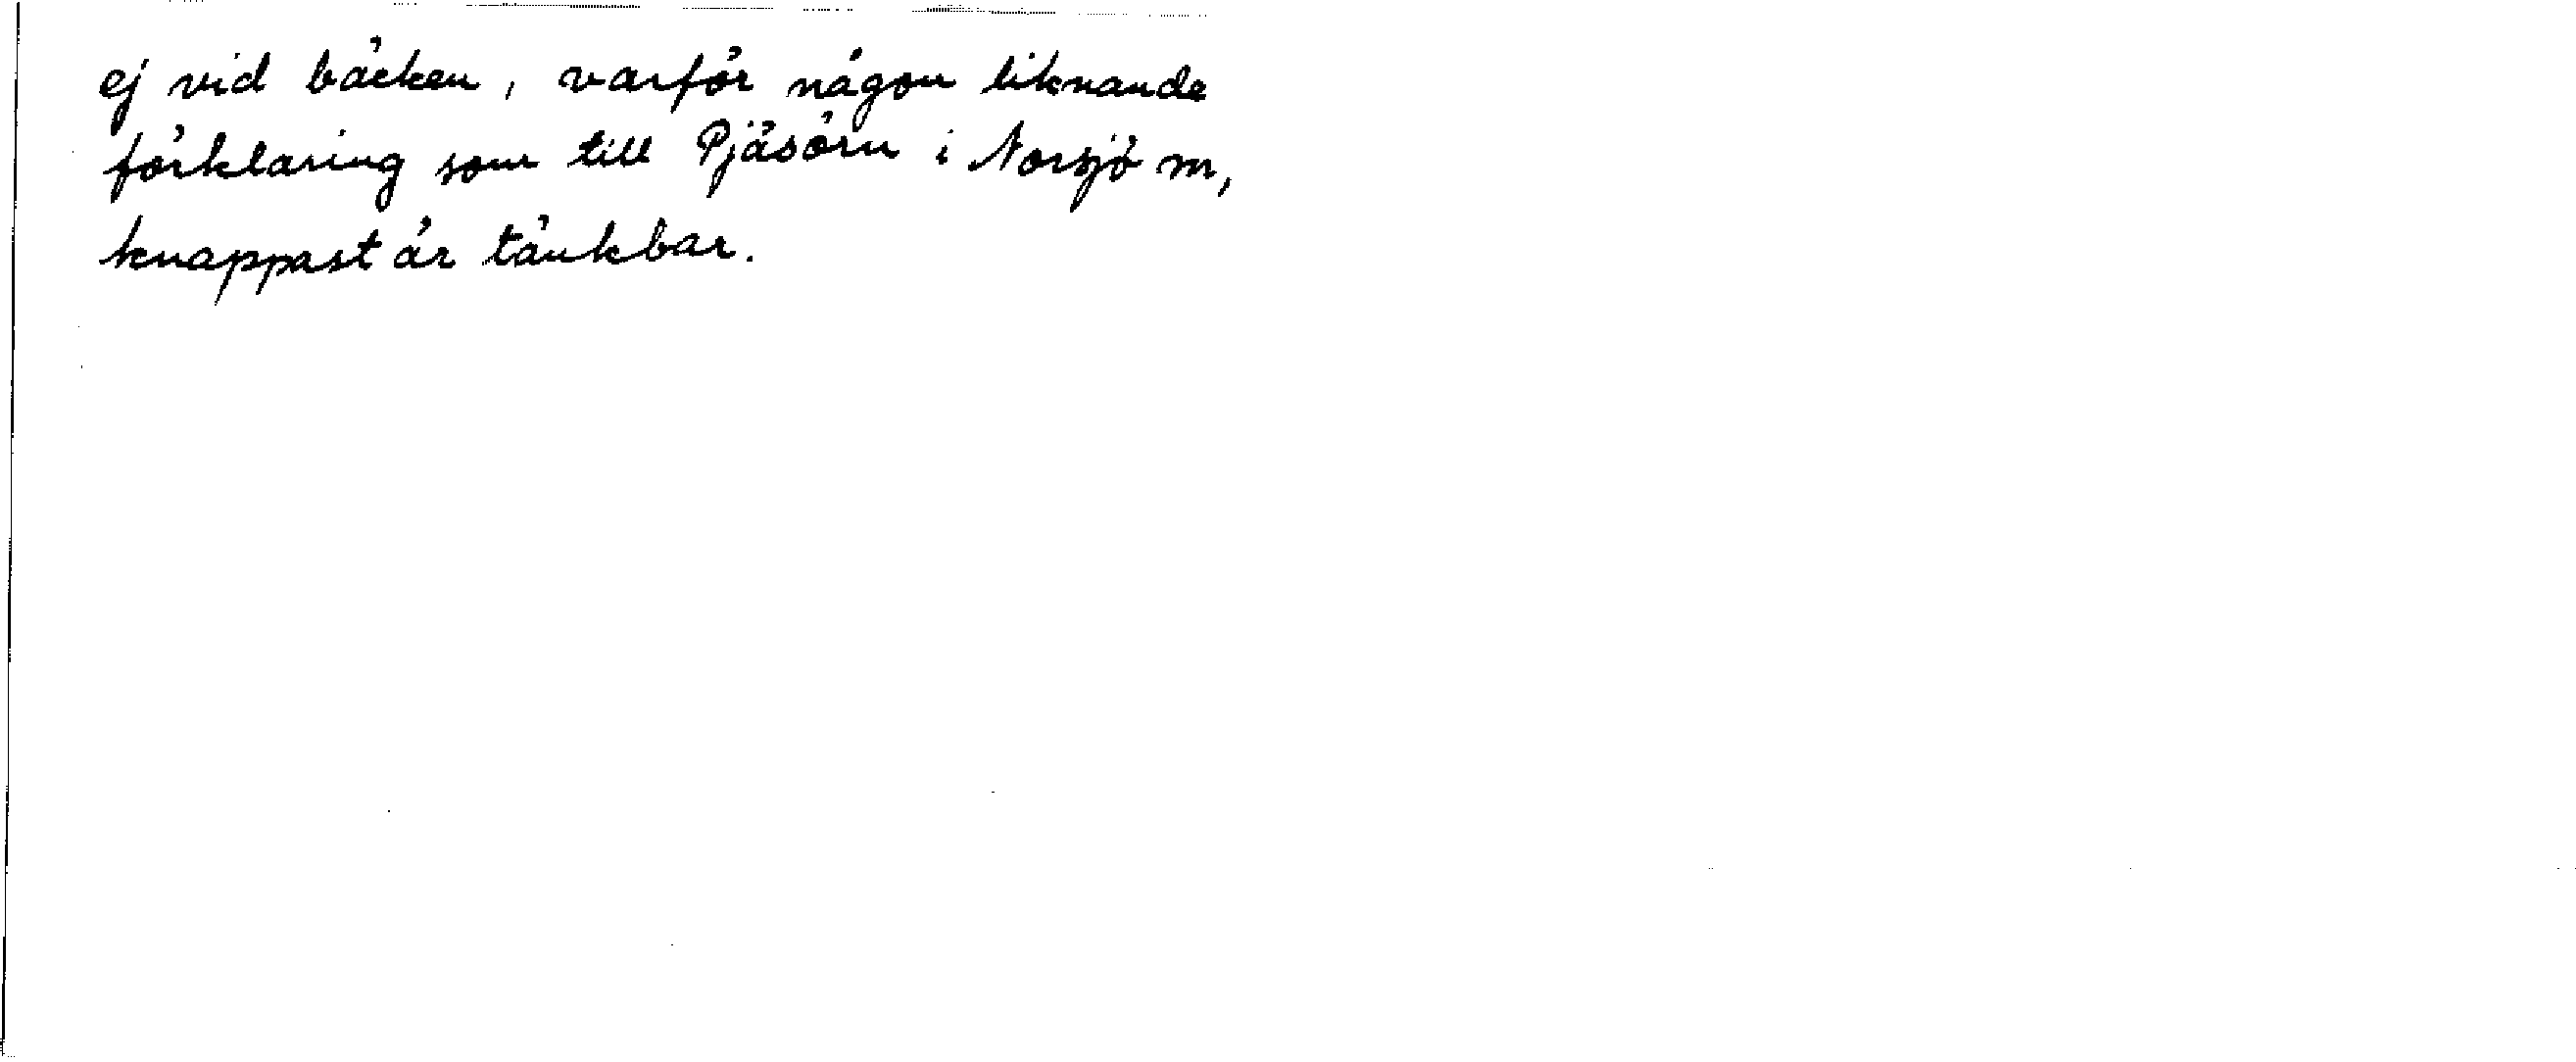 ej vid bäcken, varför någon liknande
förklaring som till Pjäsörn i Norsjö sn,
knappast är tänkbar.